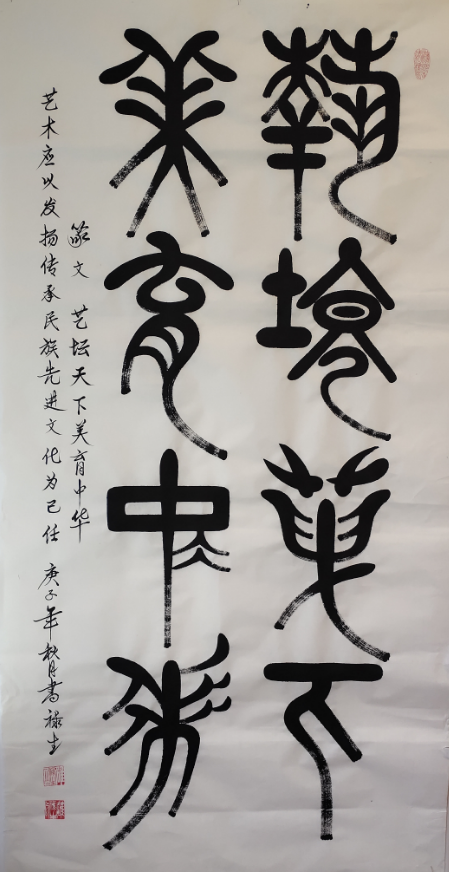 藝壇天下
美育中華
篆文 艺坛天下美育中华
艺术应以发扬传承民族先进文化为己任 庚子年秋月书禄生